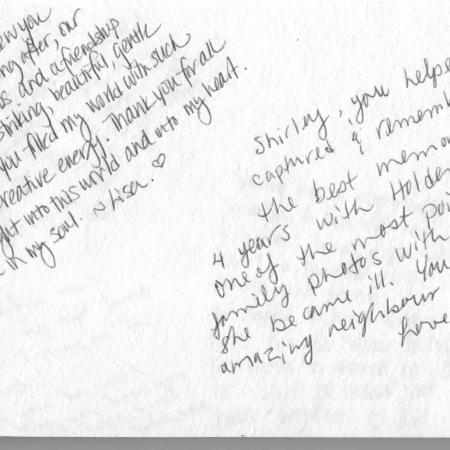 new you
ng after, our
s and a friendship
striking, beautiful, gentle
you filled my world with such
creative energy. Thank you for all
ght into this world and into my heart.
in my soul. ~Lisa. ♡
Shirley, you helpe
captured & rememb
the best memo
4 years with Holde
one of the most poi
family photos with
she became ill. You
amazing neighbour
Love